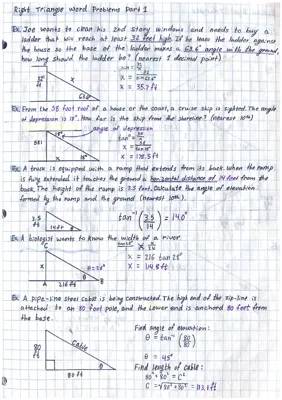 Right Triangle Word Problems Part 1
Ex. Joe wants to clean his 2nd story windows and needs to buy a
ladder that will reach at least 32 feet high. If he leans the ladder against
the house so the base of the ladder makes a 63.6° angle with the ground,
how long should the ladder be? (nearest 1 decimal point)
32
ft
x
63.6°
x = 35.7 ft
Ex. From the 58 foot roof of a house on the coast, a cruise ship is sighted. The angle
of depression is 18°. How far is the ship from the shoreline? (nearest 10th)
angle of depression
18°
58'
18°
x
x = 178.5 ft
Ex. A truck is equipped with a ramp that extends from its back. When the ramp
is fully extended it touches the ground a horizontal distance of 14 feet from the
back. The height of the ramp is 3.5 feet. Calculate the angle of elevation
formed by the ramp and the ground (nearest 10th).
3.5
ft
14 ft
θ
tan⁻¹ (3.5/14) = 14.0°
Ex. A biologist wants to know the width of a river.
C
x
θ = 28°
A 216 ft B
x = 216 tan 28°
x = 114.8 ft
Ex. A zip-line steel cable is being constructed. The high end of the zip-line is
attached to an 80 foot pole, and the lower end is anchored 80 feet from
the base.
80
ft
cable
θ
80 ft
Find angle of elevation:
θ = tan⁻¹ (80/80)
θ = 45°
Find length of cable:
80² + 80² = C²
C = √80² + 80² = 113.1 ft